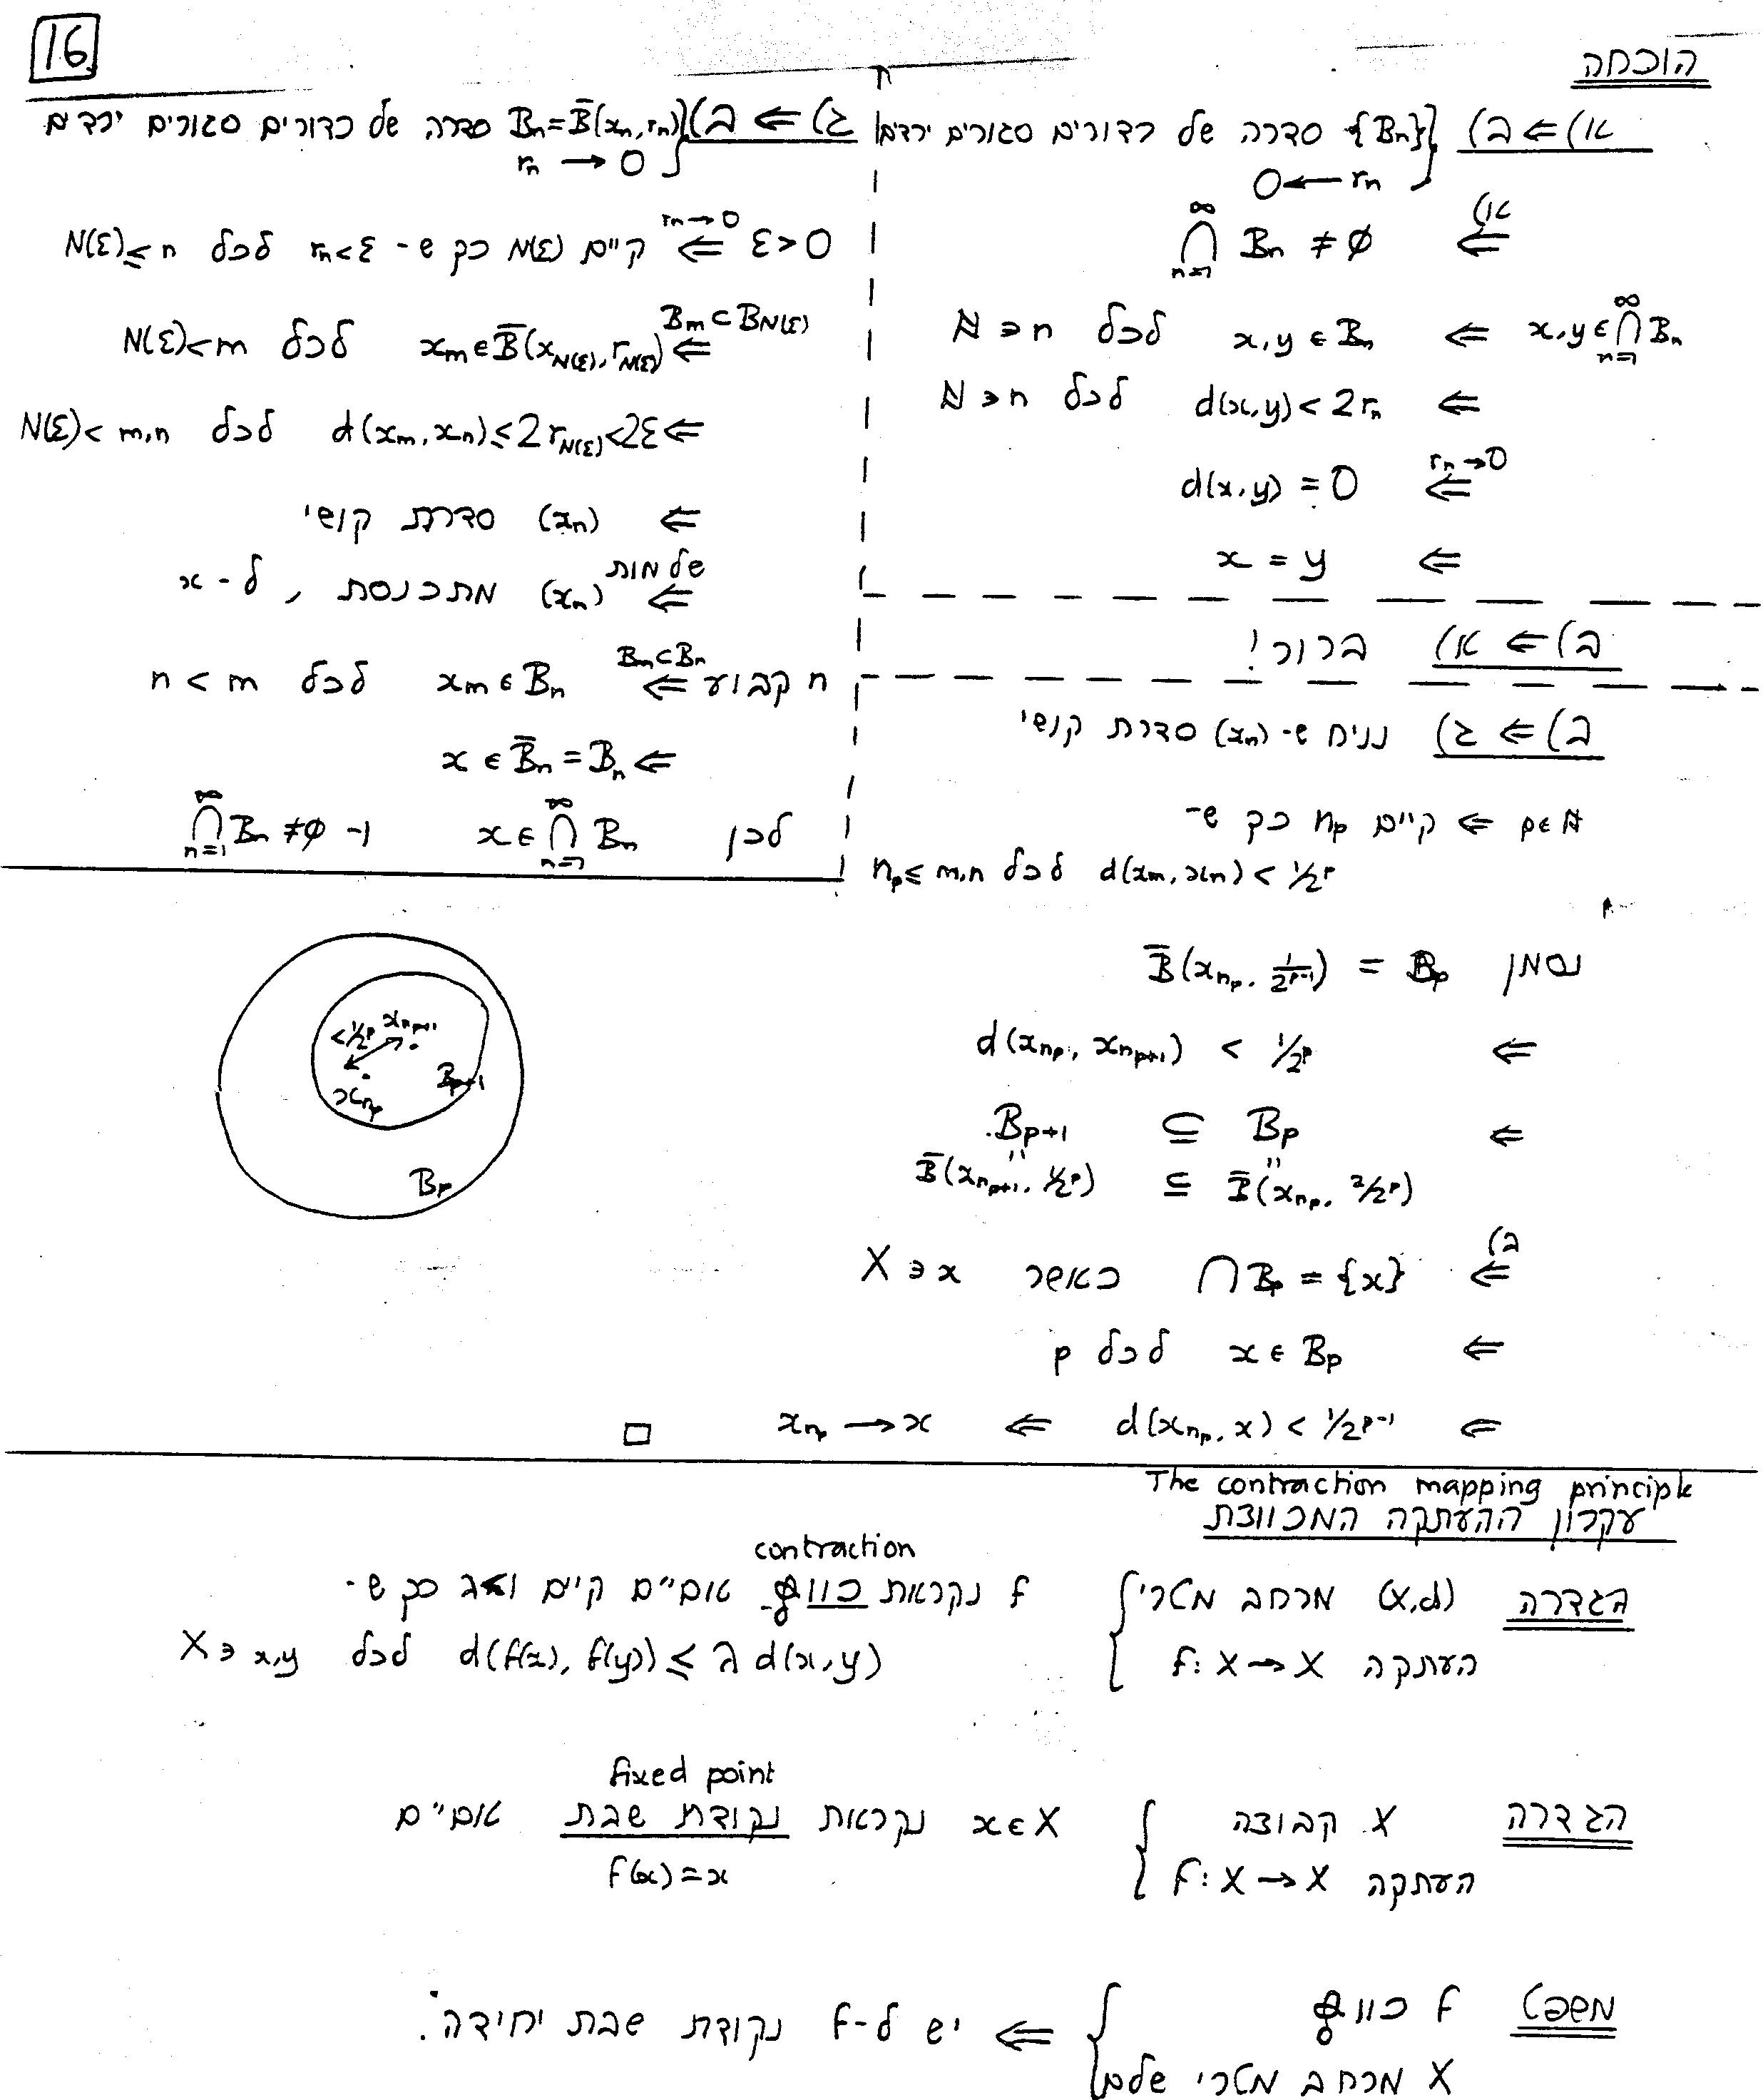 16
הוכחה
א) ⇐ ב) {Bₙ} סדרה של כדורים סגורים יורדים
0 ← rₙ
א) ⇐ ⋂_{n=1}^{∞} Bₙ ≠ ∅
x,y ∈ ⋂_{n=1}^{∞} Bₙ ⇐ x,y ∈ Bₙ לכל n ∈ ℕ
⇐ d(x,y) < 2rₙ לכל n ∈ ℕ
rₙ→0 ⇐ d(x,y) = 0
⇐ x = y
ב) ⇐ א) ברור!
ב) ⇐ ג) נניח ש- (xₙ) סדרת קושי
p ∈ ℕ ⇐ קיים n_p כך ש-
d(x_m, x_n) < 1/2^p לכל n_p ≤ m,n
נסמן B_p = B̄(x_{n_p}, 1/2^{p-1})
⇐ d(x_{n_p}, x_{n_{p+1}}) < 1/2^p
⇐ B_{p+1} ⊆ B_p
B̄(x_{n_{p+1}}, 1/2^p) ⊆ B̄(x_{n_p}, 2/2^p)
ב) ⇐ ⋂B_p = {x} כאשר x ∈ X
⇐ x ∈ B_p לכל p
⇐ d(x_{n_p}, x) < 1/2^{p-1} ⇐ x_{n_p} → x □
ג) ⇐ ב) Bₙ = B̄(xₙ, rₙ) סדרה של כדורים סגורים ירדים
rₙ → 0
ε > 0 rₙ→0 ⇐ קיים N(ε) כך ש- rₙ < ε לכל N(ε) ≤ n
B_m ⊂ B_{N(ε)} ⇐ x_m ∈ B̄(x_{N(ε)}, r_{N(ε)}) לכל N(ε) < m
⇐ d(x_m, x_n) ≤ 2r_{N(ε)} < 2ε לכל N(ε) < m,n
⇐ (xₙ) סדרת קושי
שלמות ⇐ (xₙ) מתכנסת, ל-x
n קבוע B_m ⊂ B_n ⇐ x_m ∈ B_n לכל n < m
⇐ x ∈ B̄ₙ = Bₙ
לכן x ∈ ⋂_{n=1}^{∞} Bₙ ו- ⋂_{n=1}^{∞} Bₙ ≠ ∅
< 1/2^p x_{n_{p+1}}
x_{n_p} B_{p+1}
B_p
The contraction mapping principle
עקרון ההעתקה המכווצת
contraction
הגדרה (X,d) מרחב מטרי f נקראת כווץ אם״ם קיים λ<1 כך ש-
העתקה f: X → X d(f(x), f(y)) ≤ λ d(x,y) לכל x,y ∈ X
fixed point
הגדרה X קבוצה x ∈ X נקראת נקודת שבת אם״ם
העתקה f: X → X f(x) = x
משפט f כווץ
X מרחב מטרי שלם ⇐ יש ל-f נקודת שבת יחידה.